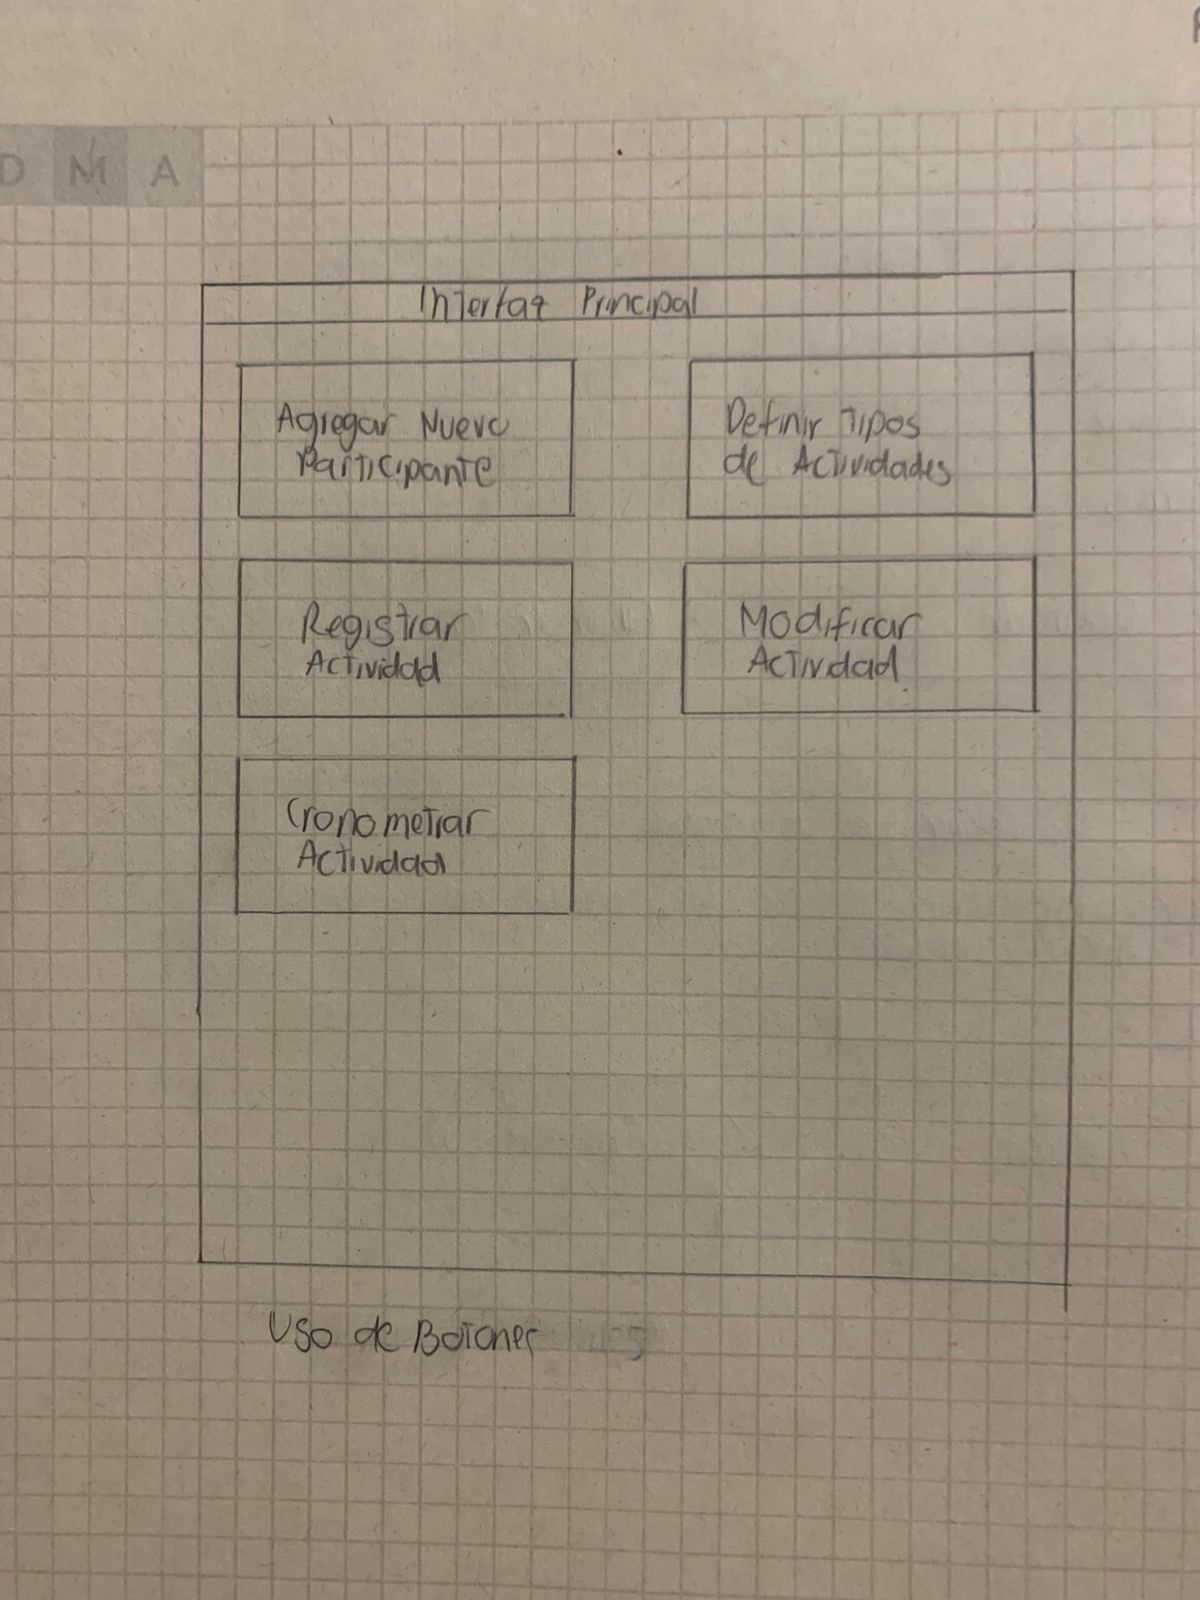 D M A
Interfaz Principal
Agregar Nuevo
Participante
Definir Tipos
de Actividades
Registrar
Actividad
Modificar
Actividad
Cronometrar
Actividad
Uso de Botones